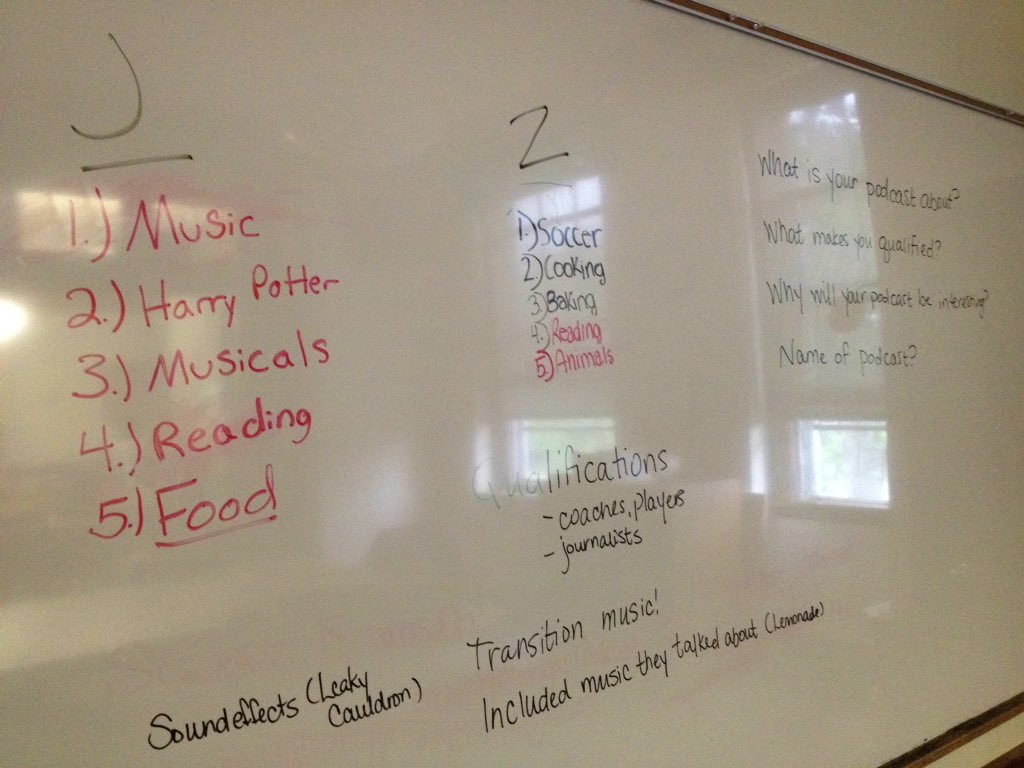 J
1.) Music
2.) Harry Potter
3.) Musicals
4.) Reading
5.) Food
Z
1.) Soccer
2.) Cooking
3.) Baking
4.) Reading
5.) Animals
What is your podcast about?
What makes you qualified?
Why will your podcast be interesting?
Name of podcast?
Qualifications
- coaches, players
- journalists
Transition music!
Included music they talked about (Lemonade)
Soundeffects (Leaky
Cauldron)